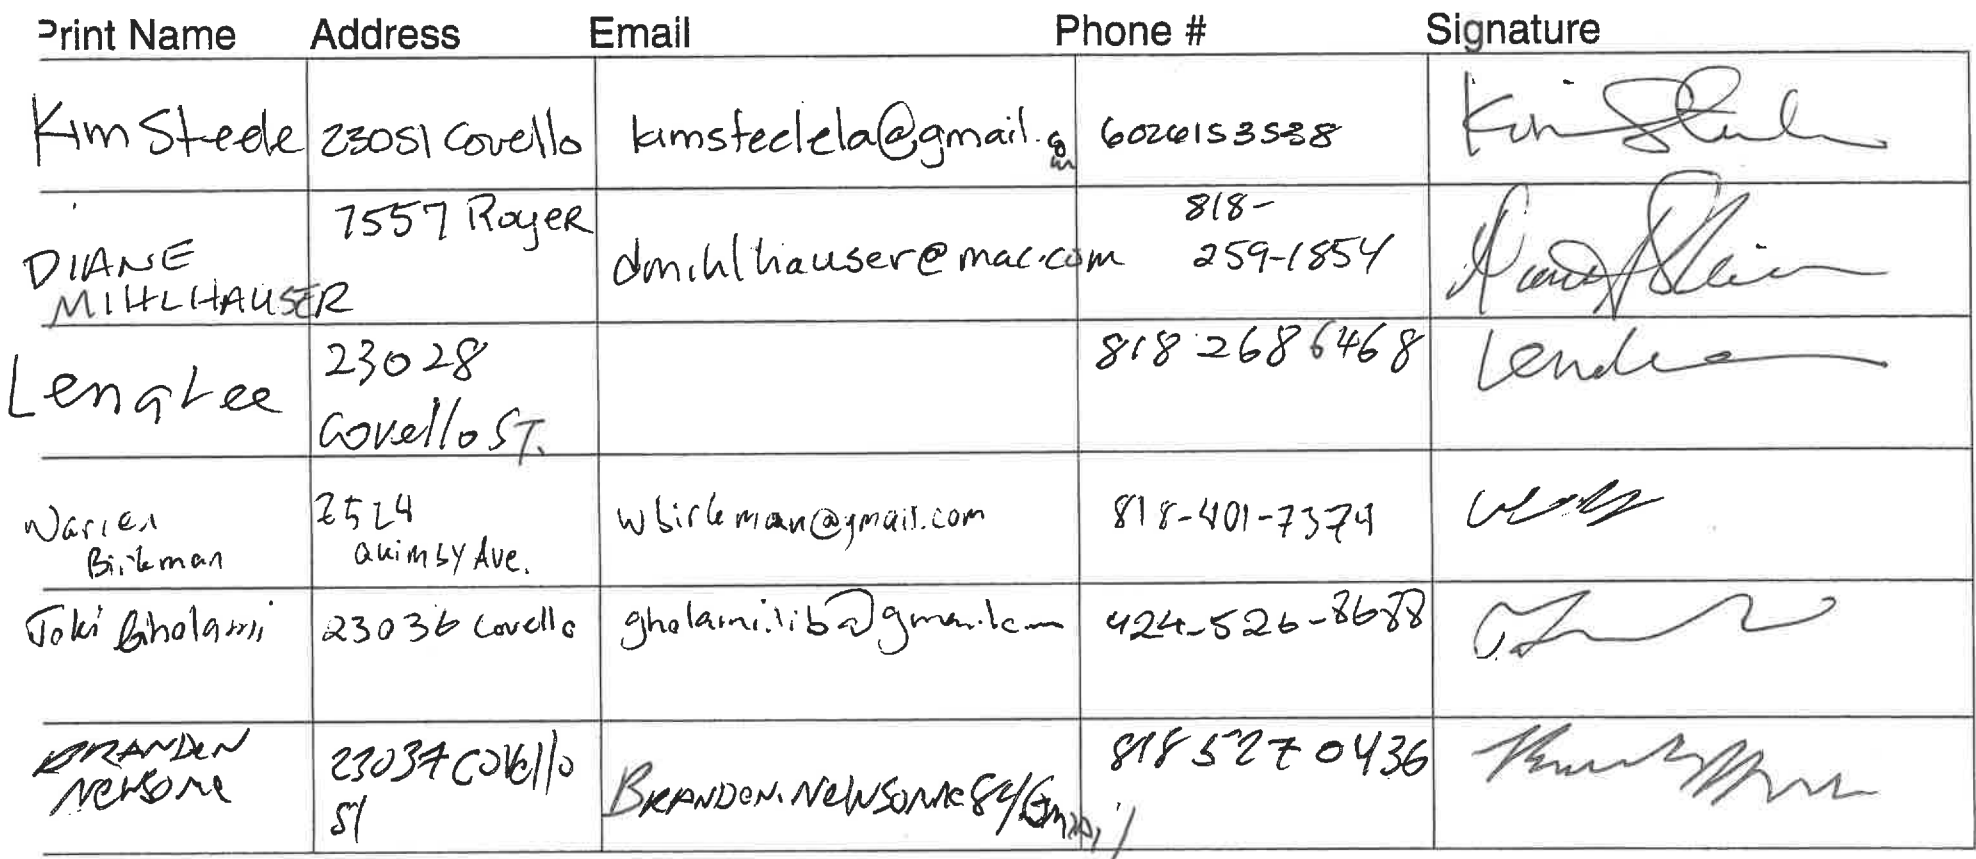 Print Name Address Email Phone # Signature
Kim Steele 23051 Covello kimsteelela@gmail.com 6026153538
DIANE MIHLHAUSER 7557 Royer dmihlhauser@mac.com 818-259-1854
Leng Lee 23028 Covello ST. 818 268 6468
Warren Birkman 7524 Quimby Ave. wbirkman@gmail.com 818-401-7374
Gholami 23036 Covello 424-526-8688
BRANDEN NEWSOME 23037 Covello St BRANDEN.NEWSOME84 Gmail 818 527 0436